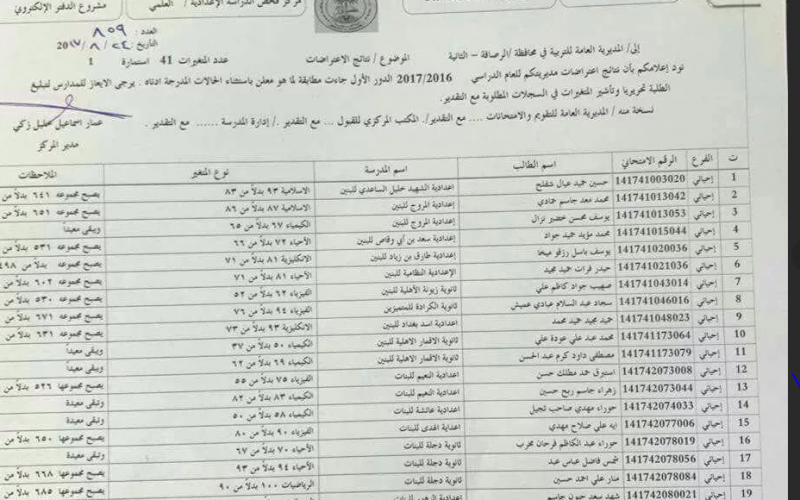 مركز فحص الدراسة الإعدادية / العلمي
مشروع الدفتر الإلكتروني
العدد: ٨٥٩
التاريخ: ٢٠١٧/٨/٢٤
إلى/ المديرية العامة للتربية في محافظة /الرصافة - الثانية
الموضوع / نتائج الاعتراضات
عدد المتغيرات 41 استمارة 1
نود إعلامكم بأن نتائج اعتراضات مديريتكم للعام الدراسي 2017/2016 الدور الأول جاءت مطابقة لما هو معلن باستثناء الحالات المدرجة ادناه . يرجى الايعاز للمدارس لتبليغ
الطلبة تحريريا وتأشير المتغيرات في السجلات المطلوبة مع التقدير.
نسخة منه / المديرية العامة للتقويم والامتحانات .... مع التقدير/. المكتب المركزي للقبول ... مع التقدير ./ إدارة المدرسة ...... مع التقدير .
عمار اسماعيل خليل زكي
مدير المركز
ت الفرع الرقم الامتحاني اسم الطالب اسم المدرسة نوع المتغير الملاحظات
1 إحيائي 141741003020 حسين حميد عيال شفلح إعدادية الشهيد خليل الساعدي للبنين الاسلامية ٩٣ بدلاً من ٨٣ يصبح مجموعه ٦٤١ بدلاً من
2 إحيائي 141741013042 محمد معد جاسم حمادي إعدادية المروج للبنين الاسلامية ٨٧ بدلاً من ٨٦ يصبح مجموعه ٦٥١ بدلاً من
3 إحيائي 141741013053 يوسف محسن خضير نزال إعدادية المروج للبنين الكيمياء ٦٧ بدلاً من ٦٥ ويبقى معيداً
4 إحيائي 141741015044 محمد مؤيد حميد جواد إعدادية سعد بن أبي وقاص للبنين الأحياء ٧٢ بدلاً من ٦٦ يصبح مجموعه ٥٣١ بدلاً من
5 إحيائي 141741020036 يوسف باسل رزقو ميخا إعدادية طارق بن زياد للبنين الانكليزية ٨١ بدلاً من ٧١ يصبح مجموعه بدلاً من ٤٩٨
6 إحيائي 141741021036 حيدر فرات احميد مجيد الإعدادية النظامية للبنين الأحياء ٨١ بدلاً من ٧٦ يصبح مجموعه ٦٠٢ بدلاً من
7 إحيائي 141741043014 صهيب جواد كاظم علي ثانوية زيونة الأهلية للبنين الفيزياء ٦٢ بدلاً من ٥٢ يصبح مجموعه ٥٣٠ بدلاً من
8 إحيائي 141741046016 سجاد عبد السلام عبادي عميش ثانوية الكرادة للمتميزين الفيزياء ٩٤ بدلاً من ٧٦ يصبح مجموعه ٦٧١ بدلاً من
9 إحيائي 141741048023 حميد مجيد حميد محمد إعدادية اسد بغداد للبنين الانكليزية ٩٣ بدلاً من ٧٣ يصبح مجموعه ٦٣١ بدلاً من
10 إحيائي 141741173064 محمد عبد علي عودة علي ثانوية الاقمار الاهلية للبنين الكيمياء ٥٠ بدلاً من ٣٧ ويبقى معيداً
11 إحيائي 141741173079 مصطفى داود كرم عبد الحسن ثانوية الاقمار الاهلية للبنين الكيمياء ٦٩ بدلاً من ٦٢ ويبقى معيداً
12 إحيائي 141742073008 استبرق حمد مطلك حسن اعدادية النعيم للبنات الفيزياء ٧٥ بدلاً من ٥٥ يصبح مجموعها ٥٢٦ بدلاً من
13 إحيائي 141742073044 زهراء جاسم ربح حسين اعدادية النعيم للبنات الكيمياء ٨٣ بدلاً من ٨٢ وتبقى معيدة
14 إحيائي 141742074033 حوراء مهدي صاحب ثجيل إعدادية عائشة للبنات الكيمياء ٥٨ بدلاً من ٥٠ وتبقى معيدة
15 إحيائي 141742077006 ايه علي صلاح مهدي اعداية الهدى للبنات الفيزياء ٩٠ بدلاً من ٨٠ يصبح مجموعها ٦٥٠ بدلاً من
16 إحيائي 141742078019 حوراء عبد الكاظم فرحان محرب ثانوية دجلة للبنات الأحياء ٧٠ بدلاً من ٦٧ وتبقى معيدة
17 إحيائي 141742078056 شمس فاضل عباس عبد ثانوية دجلة للبنات الأحياء ٩٤ بدلاً من ٩٣ يصبح مجموعها ٦٦٨ بدلاً من
18 إحيائي 141742078084 منار علي احمد حسين ثانوية دجلة للبنات الرياضيات ١٠٠ بدلاً من ٩٠ يصبح مجموعها ٦٨٥ بدلاً من
19 إحيائي 141742080021 شهد سعد جاسم